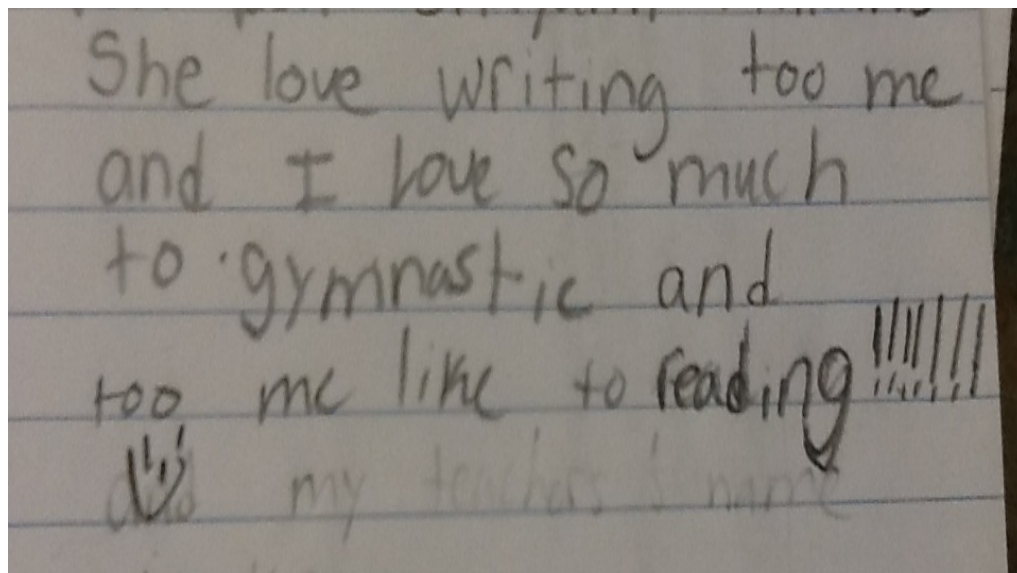 She love writing too me
and I love so much
to gymnastic and
too me like to reading!!!!!!!!
my teachers name